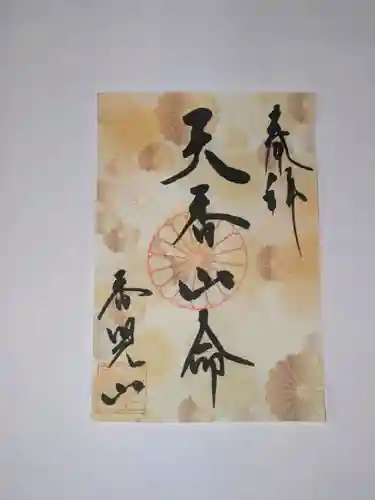 奉拝
天香山命
香児山